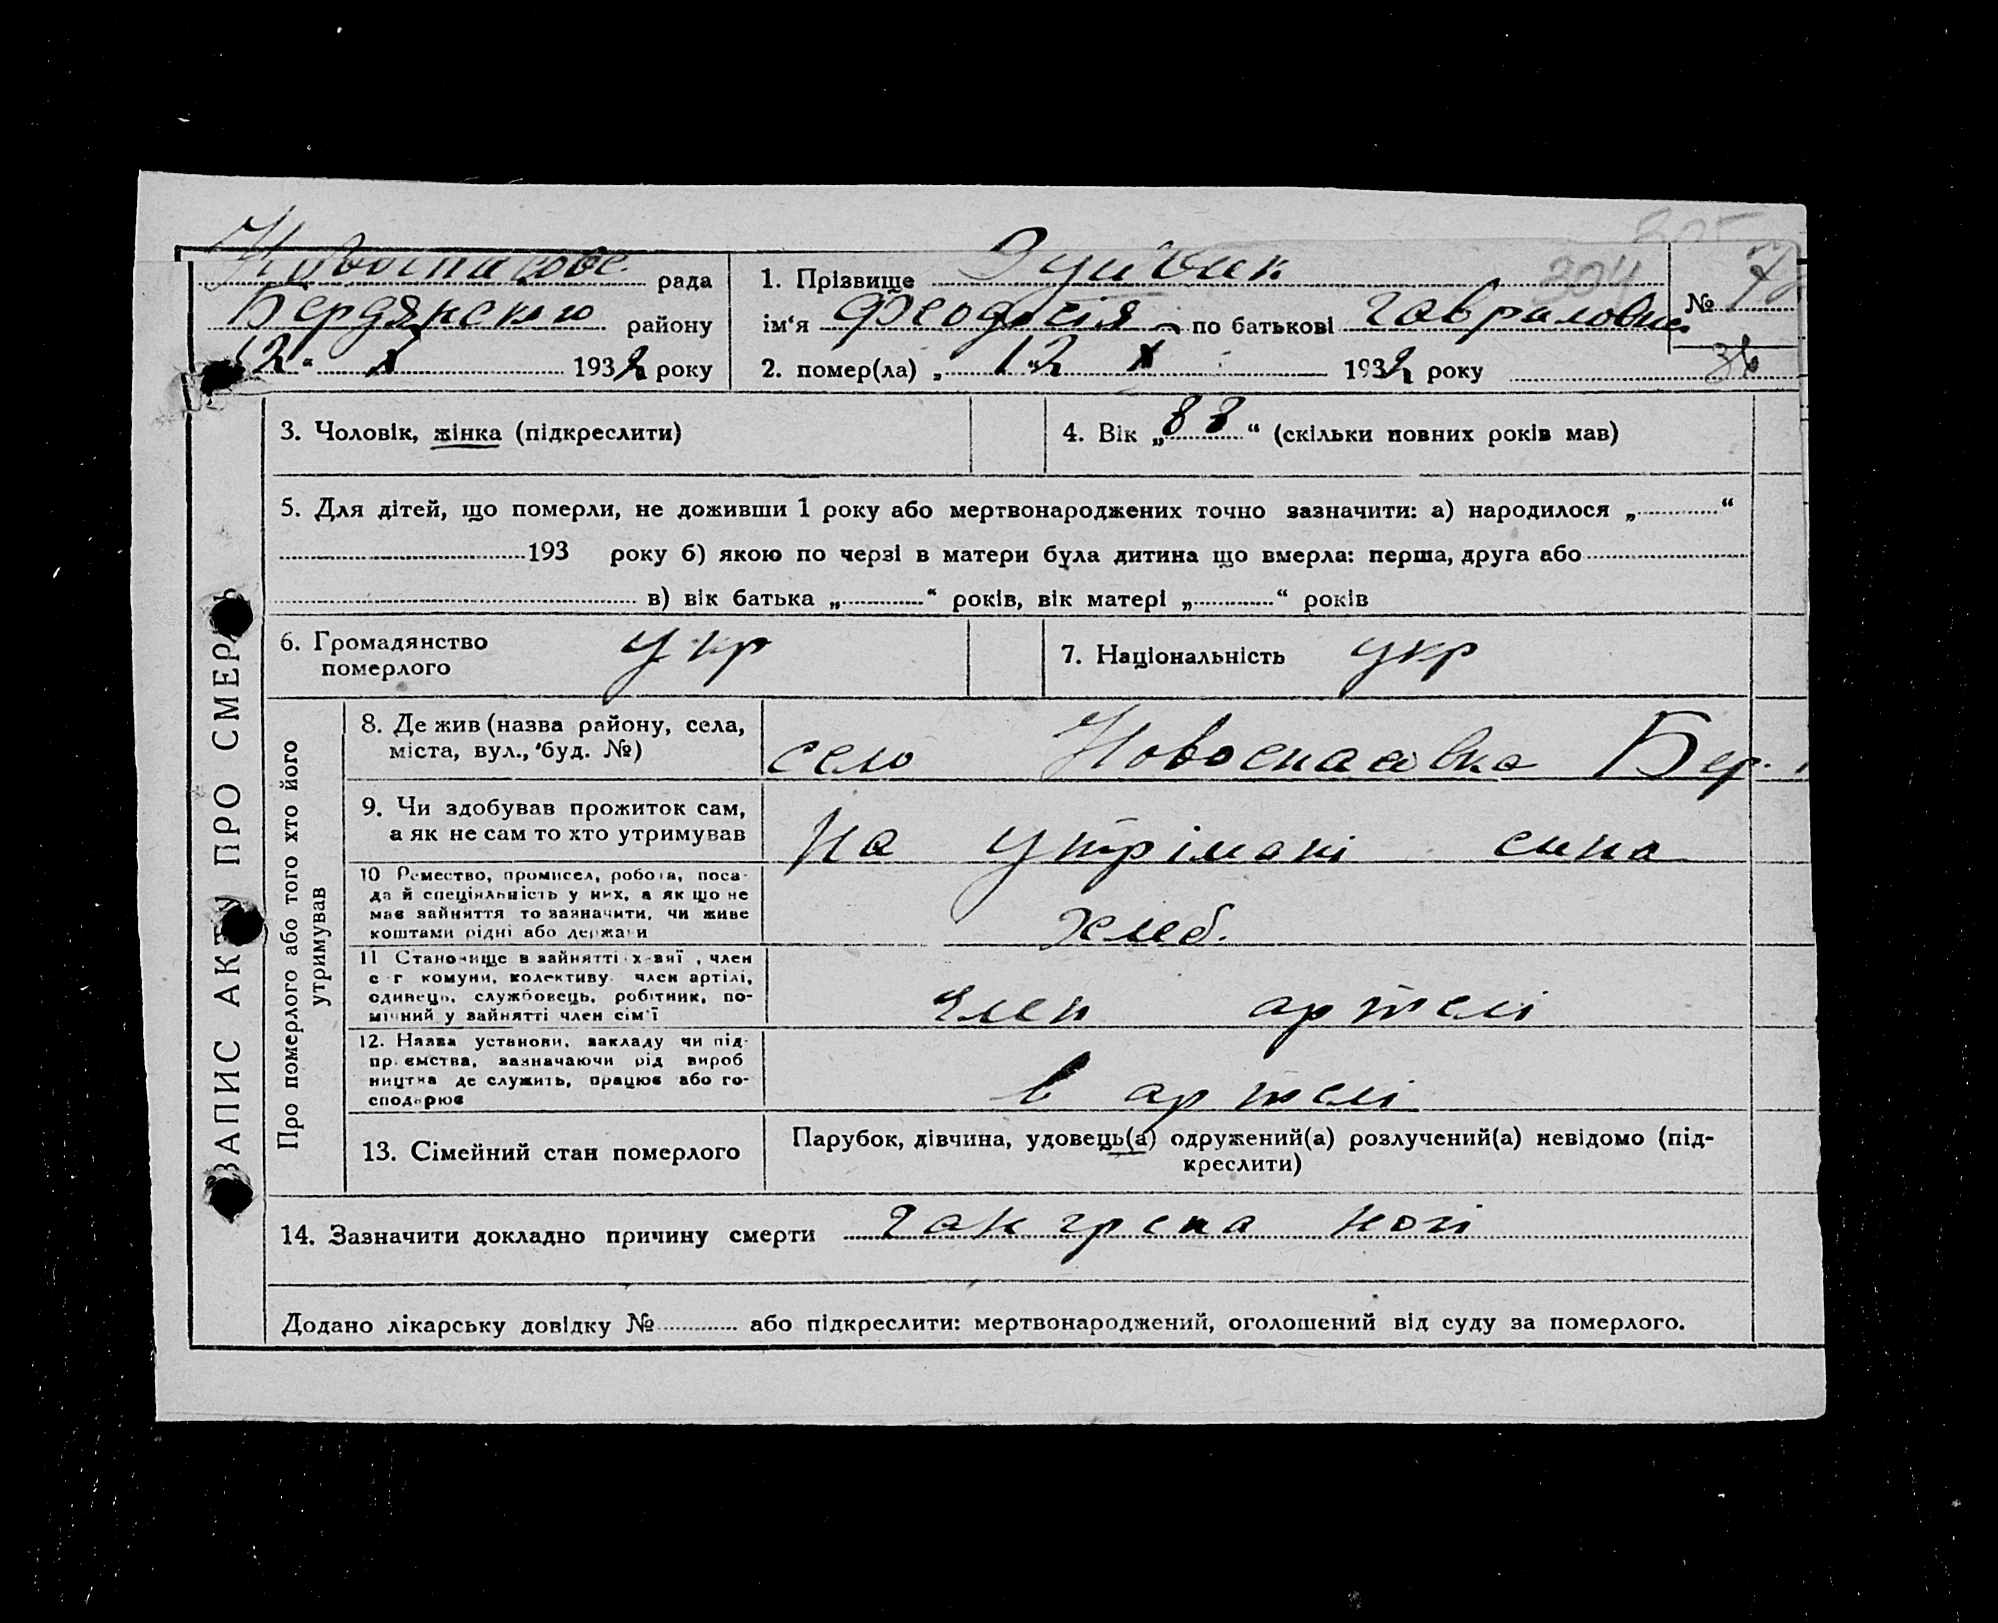 305
Новоспасовс. рада
Бердянского району
12 " X 1932 року
1. Прізвище Зуйвик 304
ім‘я Феодосія по батькові Гавриловна
2. помер(ла) „ 12 X 1932 року
№ 7
36
ЗАПИС АКТУ ПРО СМЕРТЬ
3. Чоловік, жінка (підкреслити)
4. Вік „ 88 “ (скільки повних років мав)
5. Для дітей, що померли, не доживши 1 року або мертвонароджених точно зазначити: а) народилося „ “
193 року б) якою по черзі в матери була дитина що вмерла: перша, друга або
в) вік батька „ “ років, вік матері „ “ років
6. Громадянство
померлого укр
7. Національність укр
Про померлого або того хто його
утримував
8. Де жив (назва району, села,
міста, вул., буд. №)
село Новоспасовка Бер.
9. Чи здобував прожиток сам,
а як не сам то хто утримував
на утрімані сина
10 Ремество, промисел, робота, поса-
да й спеціяльність у них, а як що не
має зайняття то зазначити, чи живе
коштами рідні або держави
хлеб.
11 Становище в зайнятті х-зяї , член
с г комуни, колективу член артілі,
одинець, службовець, робітник, по-
мічний у зайнятті член сім'ї
член артелі
12. Назва установи, закладу чи під-
приємства, зазначаючи рід вироб
ництва де служить, працює або го-
сподарює
в артелі
13. Сімейний стан померлого
Парубок, дівчина, удовець(а) одружений(а) розлучений(а) невідомо (під-
креслити)
14. Зазначити докладно причину смерти гангрена ногі
Додано лікарську довідку № або підкреслити: мертвонароджений, оголошений від суду за померлого.